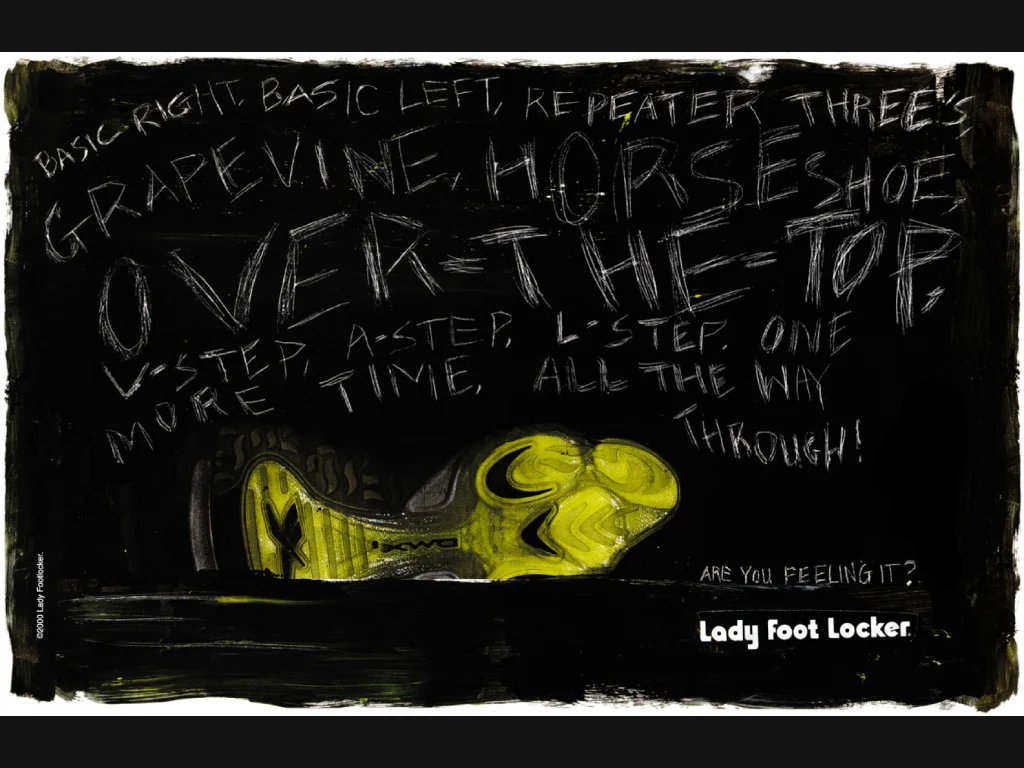 BASIC RIGHT, BASIC LEFT, REPEATER THREE'S
GRAPEVINE, HORSESHOE,
OVER-THE-TOP,
V-STEP, A-STEP, L-STEP. ONE
MORE TIME, ALL THE WAY
THROUGH!
DMX
ARE YOU FEELING IT?
Lady Foot Locker.
©2000 Lady Footlocker.